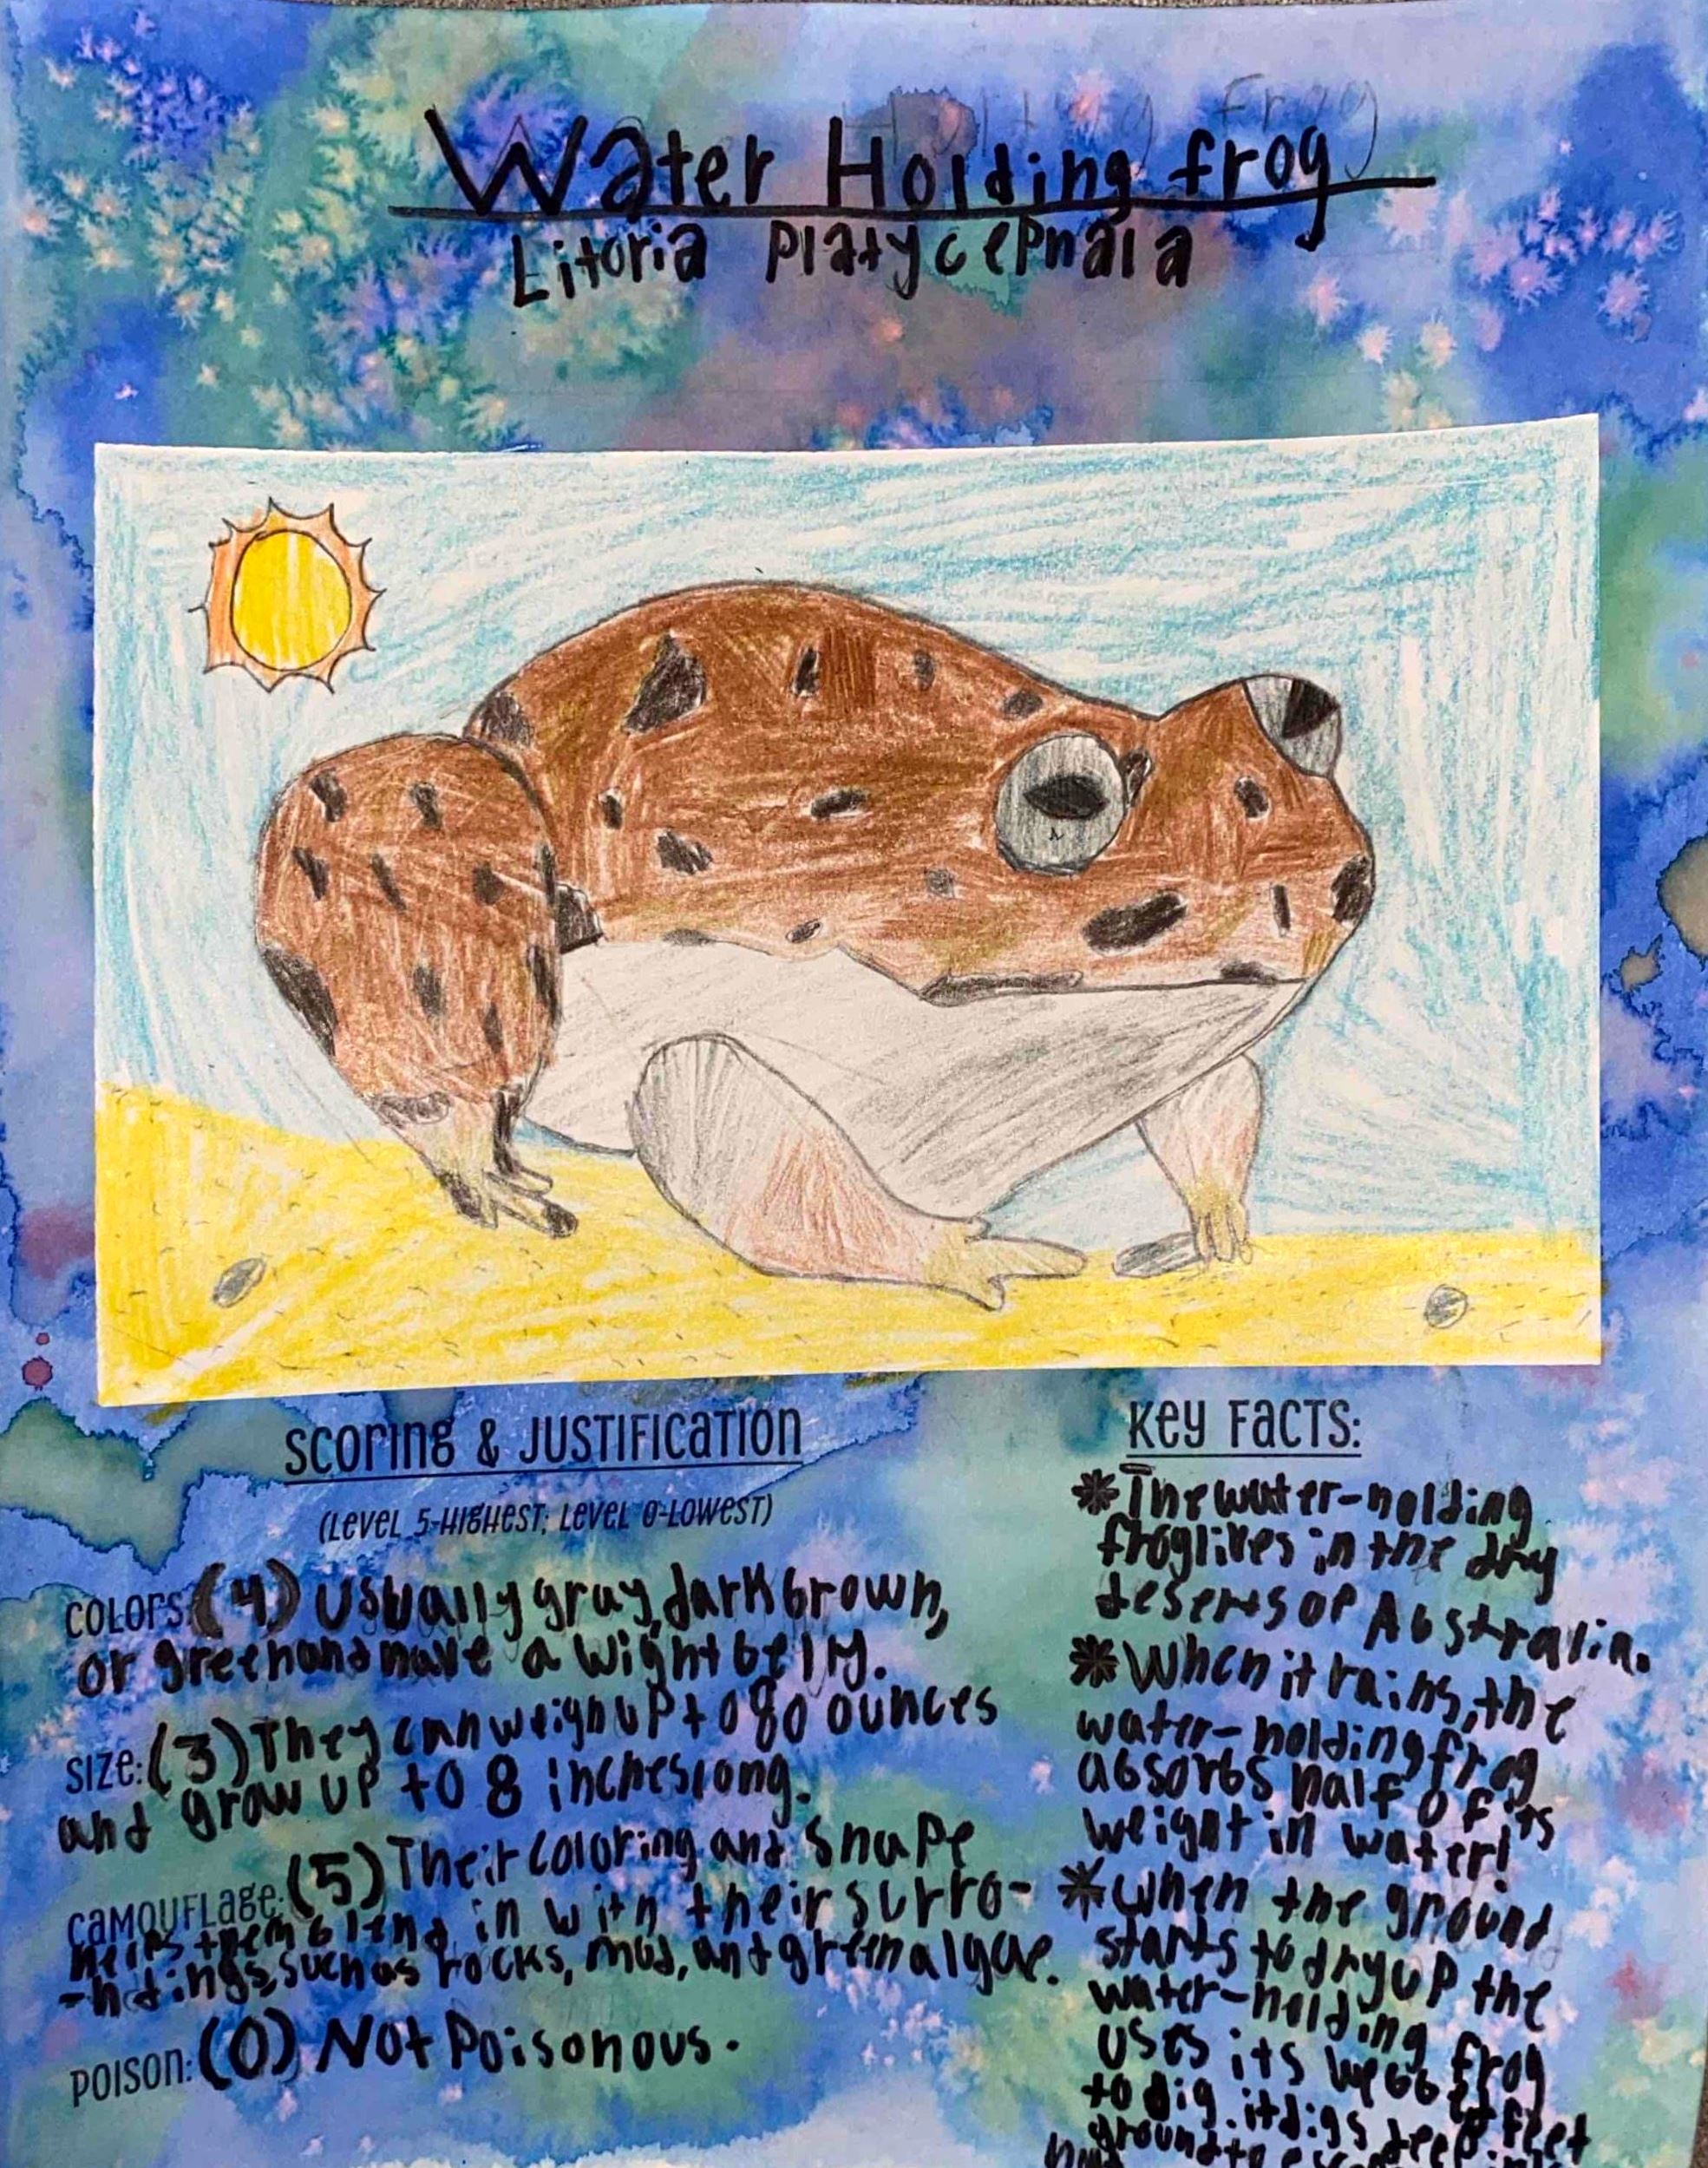 Water Holding frog
Litoria platycephala
Scoring & Justification
(Level 5-Highest; Level 0-Lowest)
Colors: (4) Usually gray, dark brown,
or green and have a wight belly.
Size: (3) They can weigh up to 80 ounces
and grow up to 8 inches long.
Camouflage: (5) Their coloring and shape
helps them blend in with their surro-
-ndings, such as rocks, mud, and green algae.
Poison: (0) Not Poisonous.
Key Facts:
*The water-holding
frog lives in the dry
deserts of Australia.
*When it rains, the
water-holding frog
absorbs half of its
weight in water!
*When the ground
starts to dry up the
water-holding frog
uses its webbed feet
to dig. it digs deep
ground to